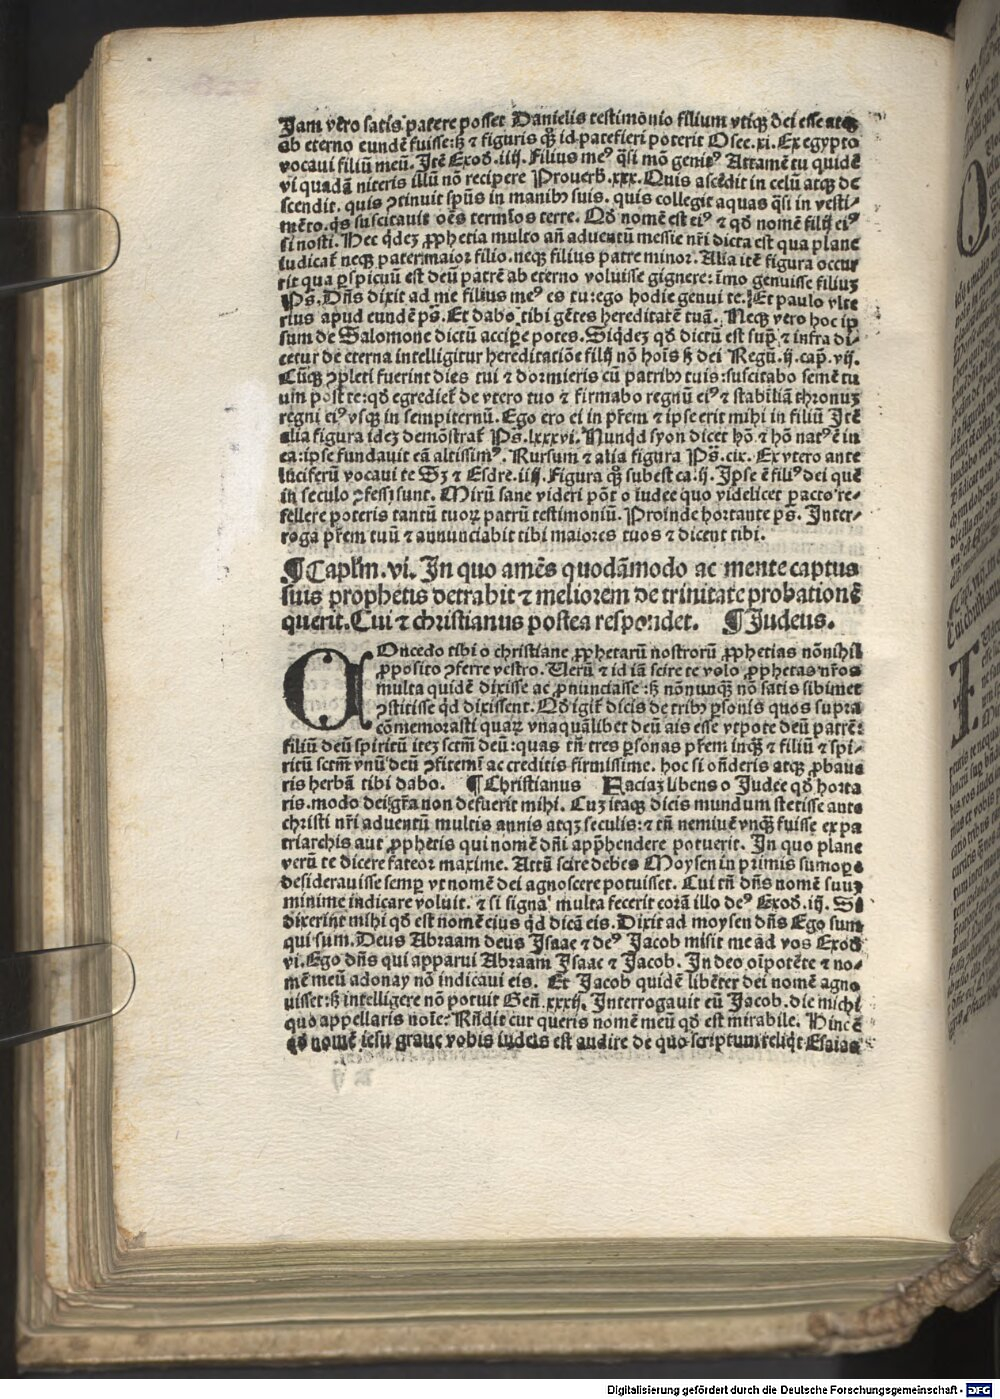 Iam vero satis patere posset Danielis testimonio filium vtiqꝫ dei esse atqꝫ
ab eterno eundē fuisse: sꝫ ⁊ figuris qꝫ id patefieri poterit Osee .xi. Ex egypto
vocaui filiū meū. Itē Exod̄ .iiij. Filius meꝰ q̄si mō genitꝰ Attamē tu quidē
vi quadā niteris illū nō recipere Prouerb̄ .xxx. Quis ascēdit in celū atqꝫ de
scendit. quis ꝯtinuit spūs in manibꝰ suis. quis collegit aquas q̄si in vesti-
mēto. q̄s suscitauit oēs termīos terre. Qd̄ nomē est eiꝰ ⁊ qd̄ nomē filij eiꝰ
si nosti. Hec q̄dez ꝓphetia multo añ aduentū messie nr̄i dicta est qua plane
iudicat̄ neqꝫ pater maior filio. neqꝫ filius patre minor. Alia itē figura occur
rit qua ꝑspicuū est deū patrē ab eterno voluisse gignere: īmo genuisse filiuꝫ
Ps̄. Dn̄s dixit ad me filius meꝰ es tu: ego hodie genui te. Et paulo vlte
rius apud eundē ps̄. Et dabo tibi gētes hereditatē tuā. Neqꝫ vero hoc ip
sum de Salomone dictū accipe potes. Siqdeꝫ qd̄ dictū est supꝰ ⁊ infra di-
cetur de eterna intelligitur hereditatiōe filij nō hoīs sꝫ dei Regū .ij. cap̄ .vij.
Cūqꝫ ꝯpleti fuerint dies tui ⁊ dormieris cū patribꝰ tuis: suscitabo semē tu
um post te: qd̄ egrediet̄ de vtero tuo ⁊ firmabo regnū eiꝰ ⁊ stabiliā thronuꝫ
regni eiꝰ vsqꝫ in sempiternū. Ego ero ei in pr̄em ⁊ ipse erit mihi in filiū Itē
alia figura ideꝫ demōstrat̄ Ps̄ .lxxxvi. Nunqd̄ syon dicet hō. ⁊ hō natꝰ ē in
ea: ipse fundauit eā altissimꝰ. Rursum ⁊ alia figura Ps̄ .cix. Ex vtero ante
luciferū vocaui te Sꝫ ⁊ Esdre .iiij. Figura qꝫ subest ca .ij. Ipse ē filiꝰ dei quē
in seculo ꝯfessi sunt. Mirū sane videri pōt o iudee quo videlicet pacto re-
fellere poteris tantū tuoꝝ patrū testimoniū. Proinde hortante ps̄. Inter-
roga pr̄em tuū ⁊ annunciabit tibi maiores tuos ⁊ dicent tibi.
¶ Caplm̄ .vi. In quo amēs quodāmodo ac mente captus
suis prophetis detrahit ⁊ meliorem de trinitate probationē
querit. Cui ⁊ christianus postea respondet. ¶ Judeus.
COncedo tibi o christiane ꝓphetarū nostrorū ꝓphetias nōnihil
ꝓposito ꝯferre vestro. Uerū ⁊ id iā scire te volo ꝓphetas nr̄os
multa quidē dixisse ac ꝓnunciasse: sꝫ nōnunqꝫ nō satis sibimet
ꝯstitisse qd̄ dixissent. Qd̄ igit̄ dicis de tribꝰ ꝑsonis quos supra
cōmemorasti quaꝝ vnaquālibet deū ais esse vtpote deū patrē:
filiū deū spiritū iteꝫ sctm̄ deū: quas tn̄ tres ꝑsonas pr̄em inqꝫ ⁊ filiū ⁊ spi-
ritū sctm̄ vnū deū ꝯfitemī ac creditis firmissime. hoc si on̄deris atqꝫ ꝓbaue
ris herbā tibi dabo. ¶ Christianus Faciaꝫ libens o Judee qd̄ horta
ris. modo dei gr̄a non defuerit mihi. Cuꝫ itaqꝫ dicis mundum stetisse ante
christi nr̄i aduentū multis annis atqꝫ seculis: ⁊ tn̄ neminē vnqꝫ fuisse ex pa
triarchis aut ꝓphetis qui nomē dn̄i apꝓhendere potuerit. In quo plane
verū te dicere fateor maxime. Attn̄ scire debes Moysen in primis sumope
desiderauisse semꝑ vt nomē dei agnoscere potuisset. Cui tn̄ dn̄s nomē suuꝫ
minime indicare voluit. ⁊ si signa multa fecerit corā illo deꝰ Exod̄ .iij. Si
dixerint mihi qd̄ est nomē eius qd̄ dicā eis. Dixit ad moysen dn̄s Ego sum
qui sum. Deus Abraam deus Isaac ⁊ deꝰ Jacob misit me ad vos Exod̄
vi. Ego dn̄s qui apparui Abraam Isaac ⁊ Jacob. In deo oīpotēte ⁊ no-
mē meū adonay nō indicaui eis. Et Jacob quidē libēter dei nomē agno
uisset: sꝫ intelligere nō potuit Gen̄ .xxxij. Interrogauit eū Jacob. dic michi
quo appellaris noīe: Rn̄dit cur queris nomē meū qd̄ est mirabile. Hinc ē
qd̄ nomē iesu graue vobis iudeis est audire de quo scriptum reliq̄t Esaias
Digitalisierung gefördert durch die Deutsche Forschungsgemeinschaft - DFG